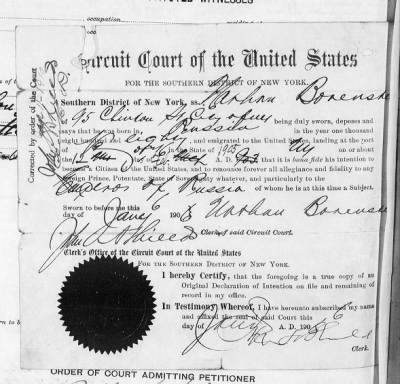 occupation
occ
Circuit Court of the United States
FOR THE SOUTHERN DISTRICT OF NEW YORK.
Southern District of New York, ss. Nathan Borenske
of 95 Clinton St City of being duly sworn, deposes and
says that he was born in Russia in the year one thousand
eight hundred and eighty and emigrated to the United States, landing at the port
of in the State of on or about
the A. D. 1905 that it is bona fide his intention to
become a Citizen of the United States, and to renounce forever all allegiance and fidelity to any
Foreign Prince, Potentate, State or Sovereignty whatever, and particularly to the
Emperor of Russia of whom he is at this time a Subject.
Sworn to before me this
day of Jany 6 1906 Nathan Borenske
John A Shields
Clerk of said Circuit Court.
Clerk's Office of the Circuit Court of the United States
FOR THE SOUTHERN DISTRICT OF NEW YORK.
I hereby Certify, that the foregoing is a true copy of an
Original Declaration of Intention on file and remaining of
record in my office.
In Testimony Whereof, I have hereunto subscribed my name
and affixed the seal of said Court this 6
day of Jany A. D. 1906
John A Shields
Clerk.
Corrected by order of the Court
John A Shields
ORDER OF COURT ADMITTING PETITIONER